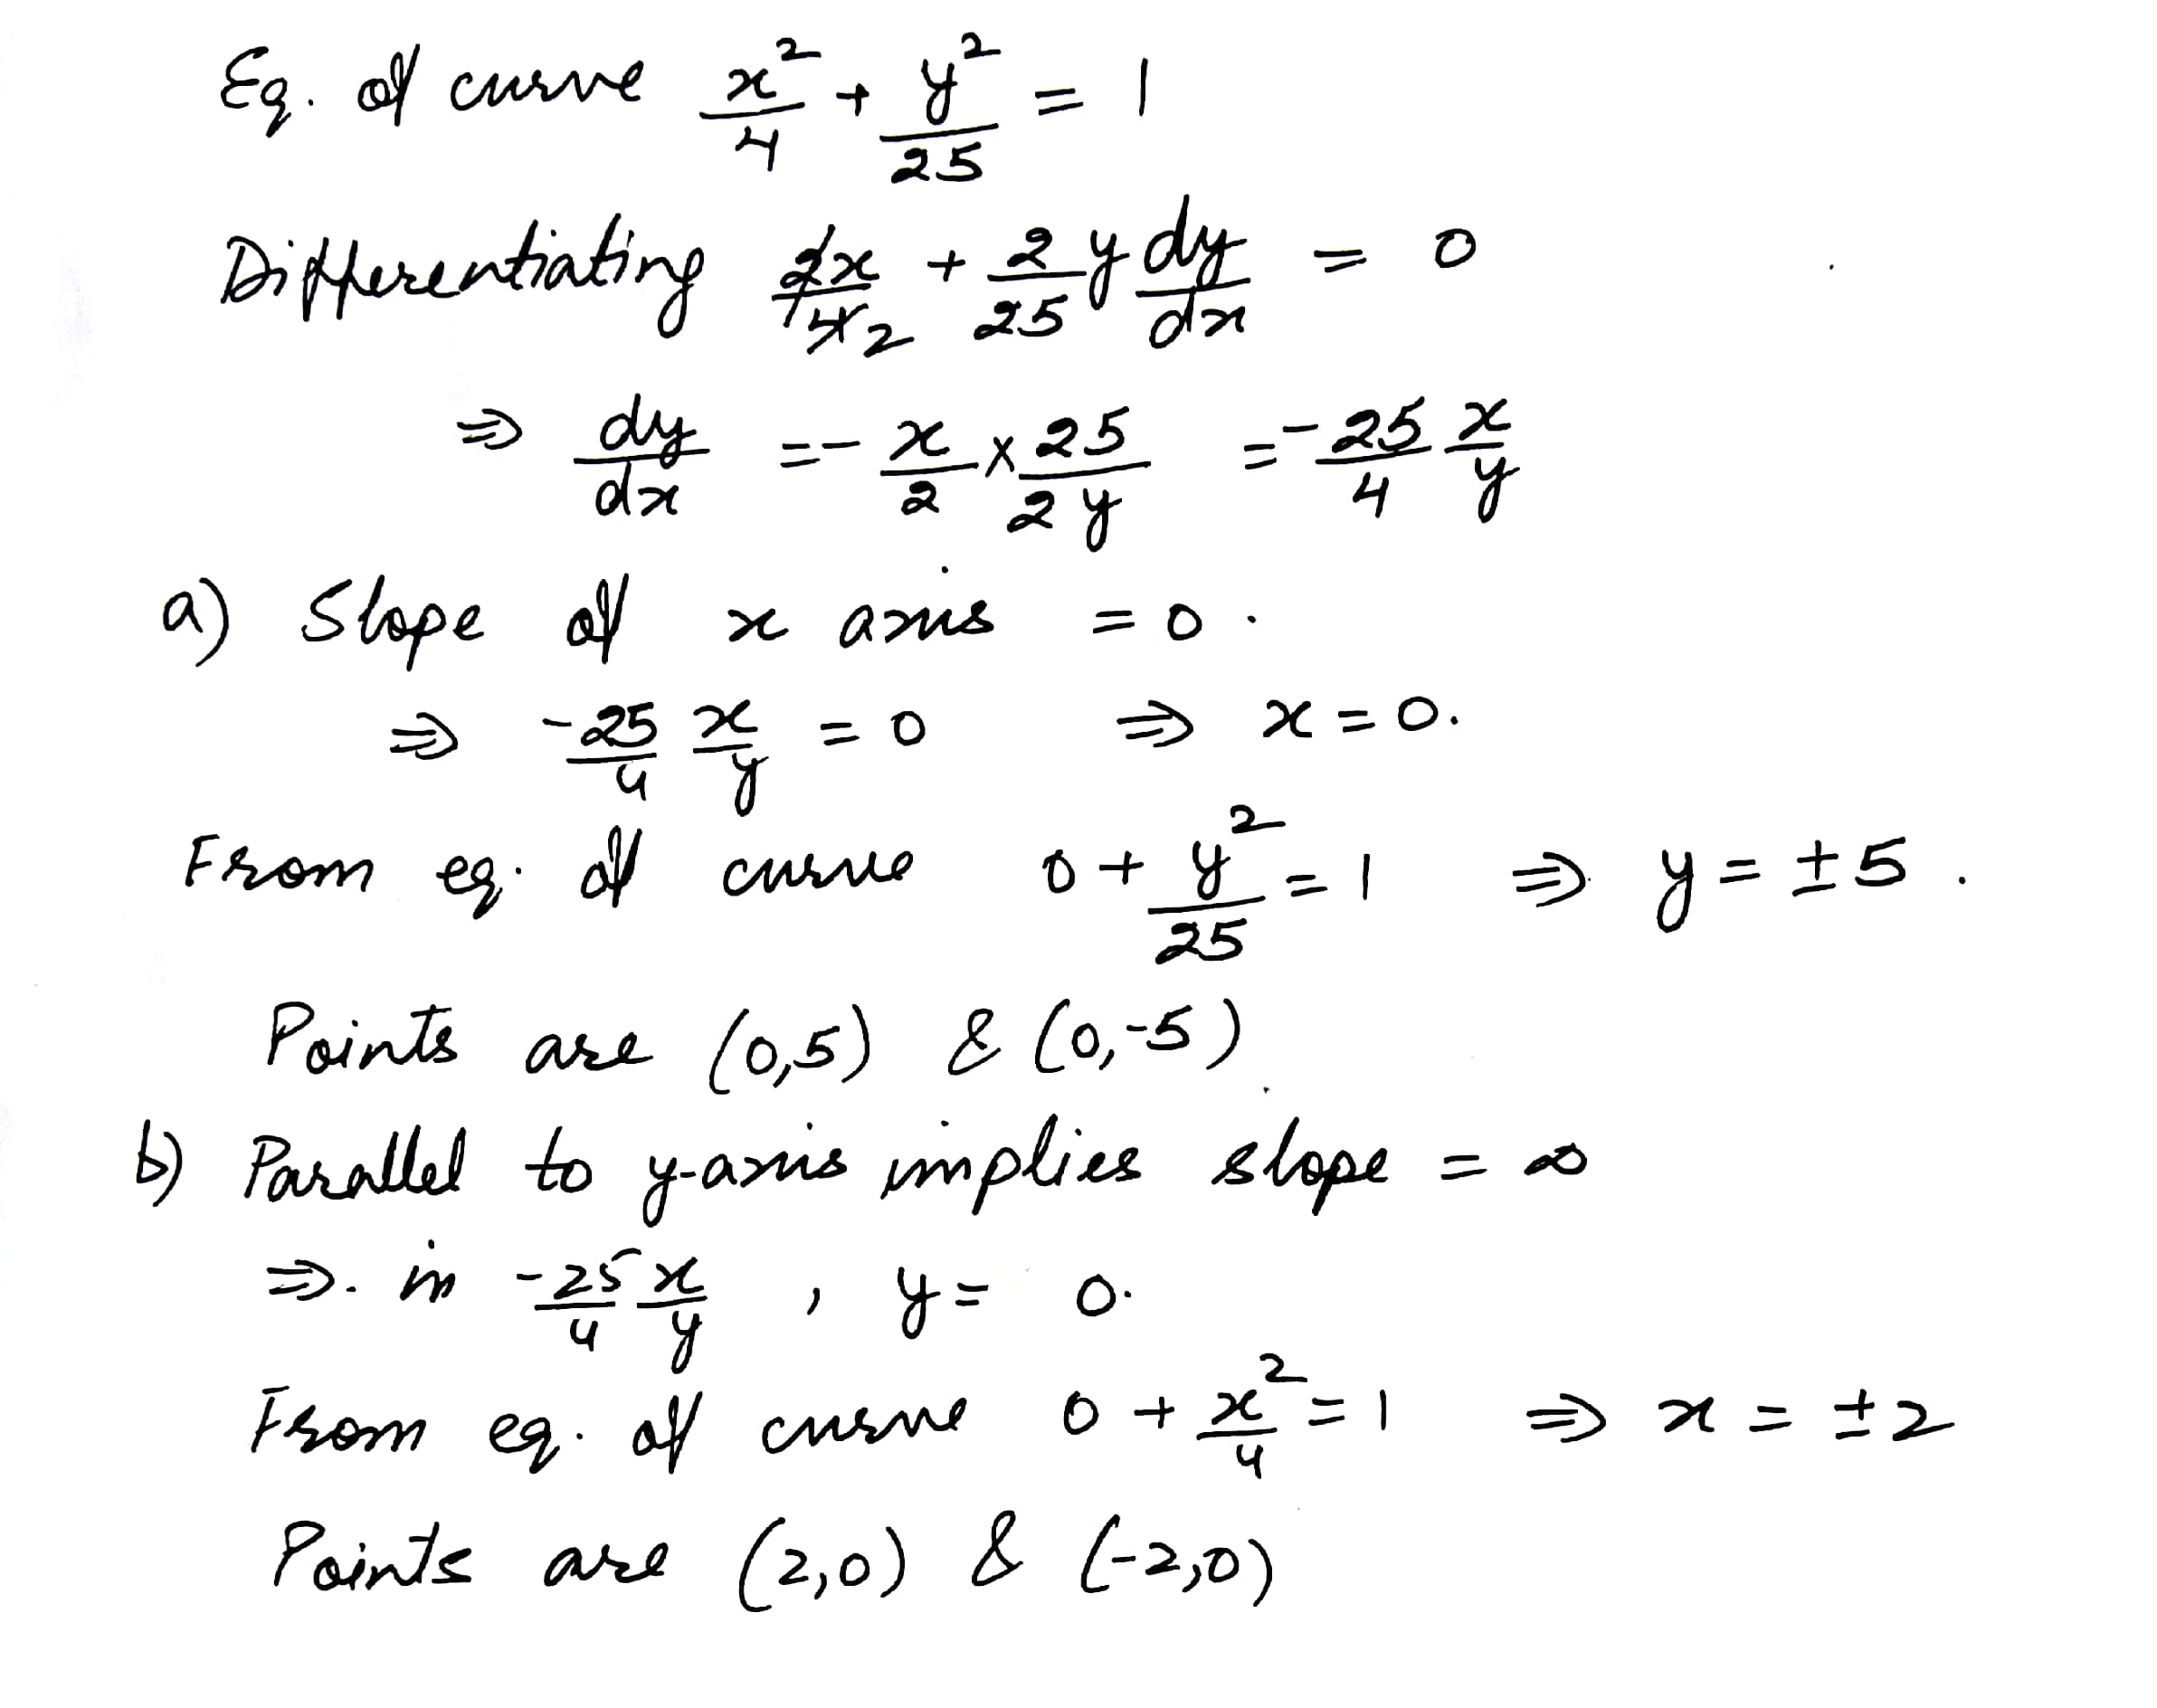 Eq. of curve x²/4 + y²/25 = 1
Differentiating 2x/4 2 + 2/25 y dy/dx = 0
⇒ dy/dx = - x/2 × 25/2y = -25/4 x/y
a) Slope of x axis = 0.
⇒ -25/4 x/y = 0 ⇒ x = 0.
From eq. of curve 0 + y²/25 = 1 ⇒ y = ±5.
Points are (0,5) & (0,-5)
b) Parallel to y-axis implies slope = ∞
⇒ in -25/4 x/y , y = 0.
From eq. of curve 0 + x²/4 = 1 ⇒ x = ±2
Points are (2,0) & (-2,0)